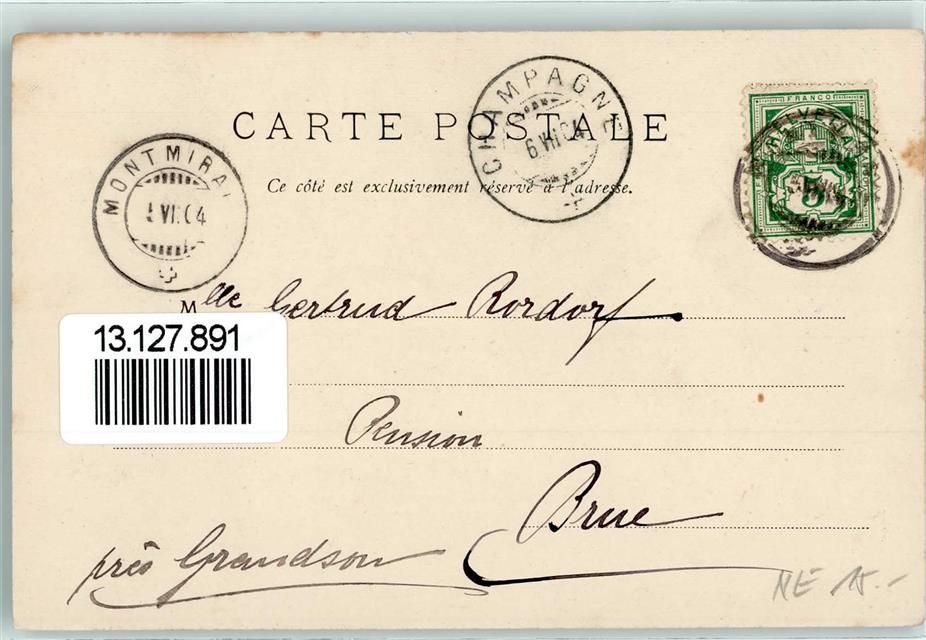 CHAMPAGNE
6 VII 04
CARTE POSTALE
FRANCO
HELVETIA
5
MONTMIRAIL
VII 04
Ce côté est exclusivement réservé à l'adresse.
Mlle Gertrud Rordorf
13.127.891
Pension
Brue
près Grandson
NE 15.-